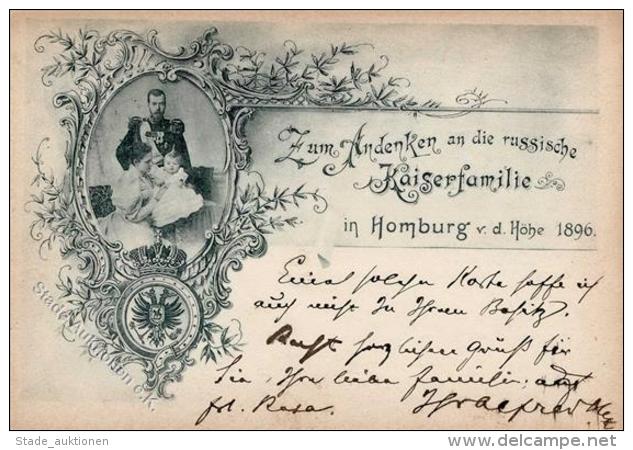 Zum Andenken an die russische
Kaiserfamilie
in Homburg v. d. Höhe 1896.
Einmal solchen Karte hoffe ich
auch nicht in Ihrem Besitz.
Recht herzlichen Gruß für
Sie, Ihre liebe Familie,
frl. Rosa. Ihr Alfred
Stade Auktionen e.K.
Stade_auktionen
www.delcampe.net